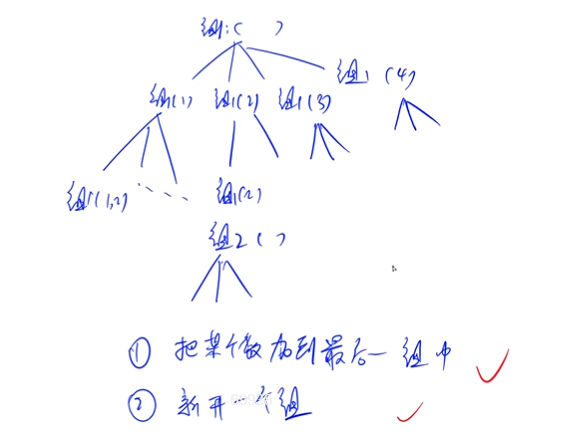 组1:( )
组1(4)
组1(1) 组1(2) 组1(3)
组1(1,2) 组1(2)
组2( )
① 把某个数加到最后一组中
② 新开一个组